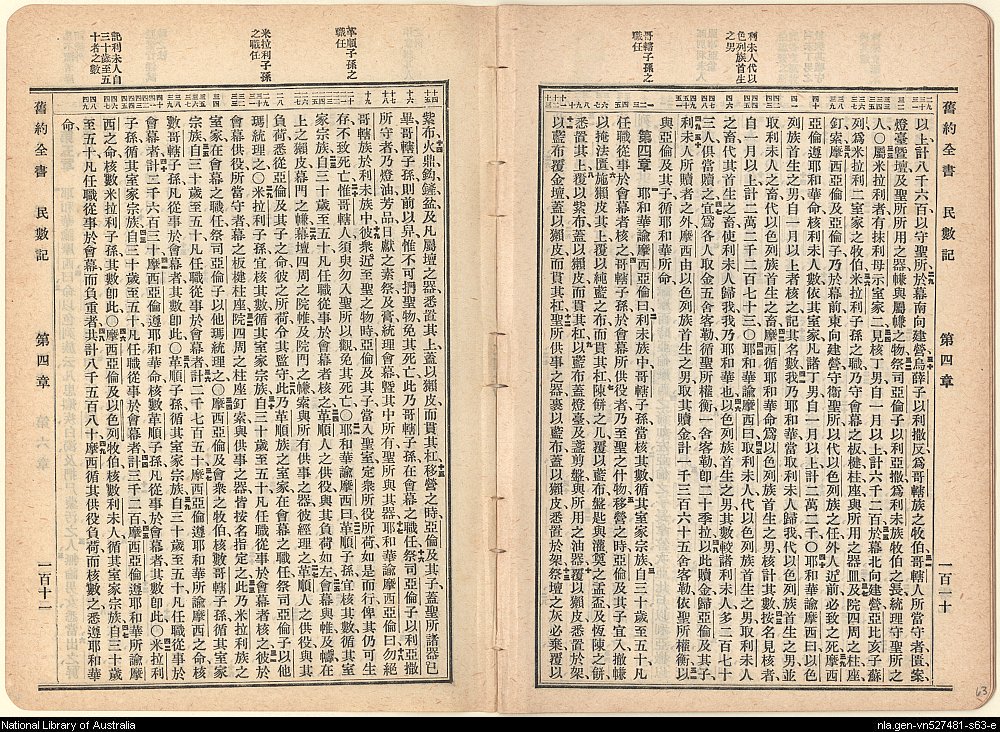 利未人代以
色列族首生
之男
哥轄子孫之
職任
舊約全書 民數記 第四章 一百一十
以上計八千六百以守聖所於幕南向建營烏薛子以利撒反爲哥轄族之牧伯哥轄人所當守者匱案
燈臺曁壇及聖所所用之器幬與屬幬之物祭司亞倫子以利亞撒爲利未族牧伯之長統理守聖所之
人〇屬米拉利者有抹利母示室家二見核丁男自一月以上計六千二百於幕北向建營亞比亥子蘇
列爲米拉利二室家之牧伯米拉利子孫之職乃守會幕之板楗柱座與所用之器皿及院四周之柱座
釘索摩西亞倫及亞倫子於幕前東向建營守衛聖所以代以色列族之任外人近前必致之死摩西
亞倫遵耶和華命核利未人數依其室家凡諸丁男自一月以上計二萬二千〇耶和華諭摩西曰以色
列族首生之男自一月以上者核之記其名數我乃耶和華當取利未人歸我代以色列族首生之男並
取利未人之畜代以色列族首生之畜摩西循耶和華命爲以色列族首生之男核計其數按名見核者
自一月以上計二萬二千二百七十三〇耶和華諭摩西曰取利未人代以色列族首生之男取利未人
之畜代其首生之畜使利未人歸我我乃耶和華也以色列族首生之男其數較諸利未人多二百七十
三人俱當贖之宜爲各人取金五舍客勒循聖所權衡一舍客勒卽二十季拉以此贖金歸亞倫及其子
利未人所贖者之外摩西由以色列族首生之男取其贖金計一千三百六十五舍客勒依聖所權衡以
與亞倫及其子循耶和華所命
第四章 耶和華諭摩西亞倫曰利未族中哥轄子孫當核其數循其室家宗族自三十歲至五十凡
任職從事於會幕者核之哥轄子孫於會幕所供役者乃至聖之什物移營之時亞倫及其子宜入撤幬
以掩法匱以獺皮其上覆以純藍之布而貫其杠陳餅之几覆以藍布盤匙與灌奠之盂盃及恆陳之餅
悉置其上覆以紫布蓋以獺皮而貫其杠以藍布蓋燈臺及盞剪盤與所用之油器覆以獺皮悉置於架
以藍布覆金壇蓋以獺皮而貫其杠聖所供事之器裹以藍布蓋以獺皮悉置於架祭壇之灰必棄覆以
革順子孫之
職任
米拉利子孫
之職任
記利未人自
三十歲至五
十者之數
紫布火鼎鉤鍤盆及凡屬壇之器悉置其上蓋以獺皮而貫其杠移營之時亞倫及其子蓋聖所諸器已
畢哥轄子孫則前以舁惟不可捫聖物免其死亡此乃哥轄子孫在會幕之職任祭司亞倫子以利亞撒
所守者乃燈油芳品日獻之素祭及膏統理會幕曁其中所有聖所與其器耶和華諭摩西亞倫曰勿絕
哥轄族於利未族中彼衆近至聖之物時亞倫及其子當入聖室定衆所役所荷如是而行俾其仍可生
存不致死亡惟哥轄人須臾勿入聖所以觀免其死亡〇耶和華諭摩西曰革順子孫宜核其數循其室
家宗族自三十歲至五十凡任職從事於會幕者核之革順人之供役與其負荷如左會幕與帷及幪在
上之獺皮幕門之幬幕壇四周之院帷及院門之幬與索以及所有供事之器彼經理之革順人之供役與其
負荷悉從亞倫及其子之命彼之所荷令其監守此乃革順族之室家在會幕之職任祭司亞倫子以他
瑪統理之〇米拉利子孫宜核其數循其室家宗族自三十歲至五十凡任職從事於會幕者核之彼於
會幕供役所當守者幕之板楗柱座院四周之柱座釘索與供事之器皆按名指定之此乃米拉利族之
室家在會幕之職任祭司亞倫子以他瑪統理之〇摩西亞倫及會衆之牧伯核數哥轄子孫循其室家
宗族自三十歲至五十凡任職從事於會幕者計二千七百五十摩西亞倫遵耶和華所諭摩西之命核
數哥轄子孫凡從事於會幕者其數卽此〇革順子孫循其室家宗族自三十歲至五十凡任職從事於
會幕者計二千六百三十摩西亞倫遵耶和華命核數革順子孫凡從事於會幕者其數卽此〇米拉利
子孫循其室家宗族自三十歲至五十凡任職從事於會幕者計三千二百摩西亞倫遵耶和華所諭摩
西之命核數米拉利子孫其數卽此〇摩西亞倫及以色列牧伯核數利未人循其室家宗族自三十歲
至五十凡任職從事於會幕而負重者共計八千五百八十摩西循其供役負荷而核數之悉遵耶和華
命
舊約全書 民數記 第四章 一百十一
63
National Library of Australia
nla.gen-vn527481-s63-e